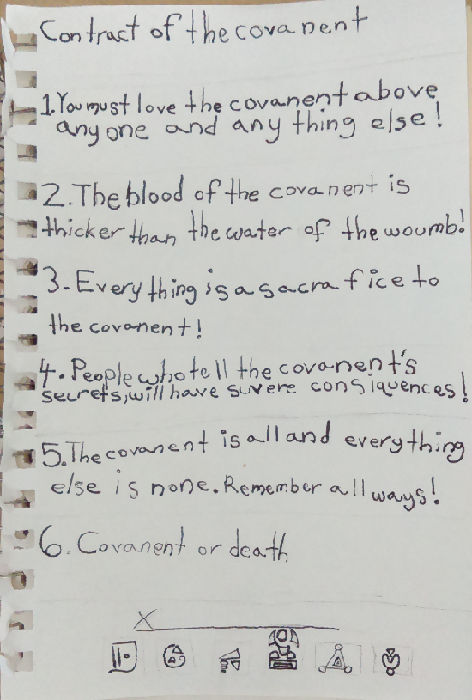 Contract of the covanent
1. You must love the covanent above
anyone and any thing else!
2. The blood of the covanent is
thicker than the water of the woumb!
3. Every thing is a sacra fice to
the covanent!
4. People who tell the covanent's
secrets, will have suvere consiquences!
5. The covanent is all and everything
else is none. Remember all ways!
6. Covanent or death
X